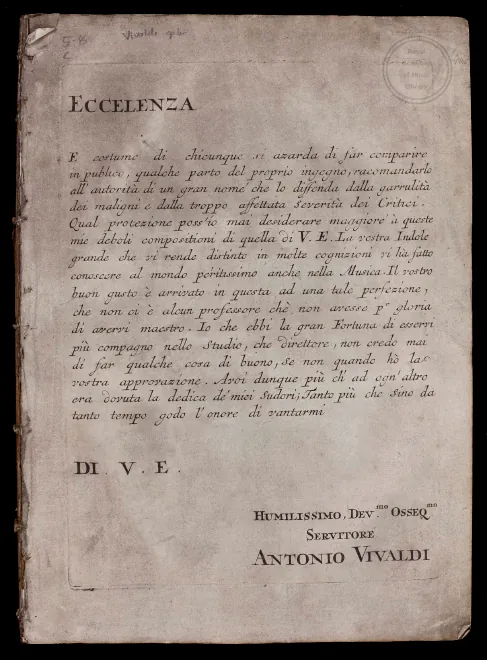 5-8
ECCELENZA
E costume di chiunque si azarda di far comparire
in publico, qualche parto del proprio ingegno, racomandarlo
all'autorità di un gran nome che lo diffenda dalla garrulità
dei maligni e dalla troppo affettata Severità dei Critici.
Qual protezione poss'io mai desiderare maggiore à queste
mie deboli compositioni di quella di V. E. La vostra Indole
grande che vi rende distinto in molte cognizioni vi hà fatto
conoscere al mondo peritissimo anche nella Musica. Il vostro
buon gusto è arrivato in questa ad una tale perfezione,
che non vi è alcun professore chè non avesse pr gloria
di avervi maestro. Io che ebbi la gran Fortuna di esservi
più compagno nello Studio, che direttore, non credo mai
di far qualche cosa di buono, se non quando hò la
vostra approvazione. Avoi dunque più ch'ad ogn'altro
era dovuta la dedica de miei Sudori; Tanto più che sino da
tanto tempo godo l'onore di vantarmi
DI. V. E.
HUMILISSIMO, DEV.mo OSSEQ.mo
SERVITORE
ANTONIO VIVALDI